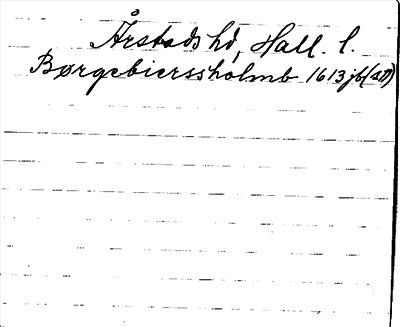 Årstads hd, Hall. l.
Børgebierssholmb 1613 jb(au)